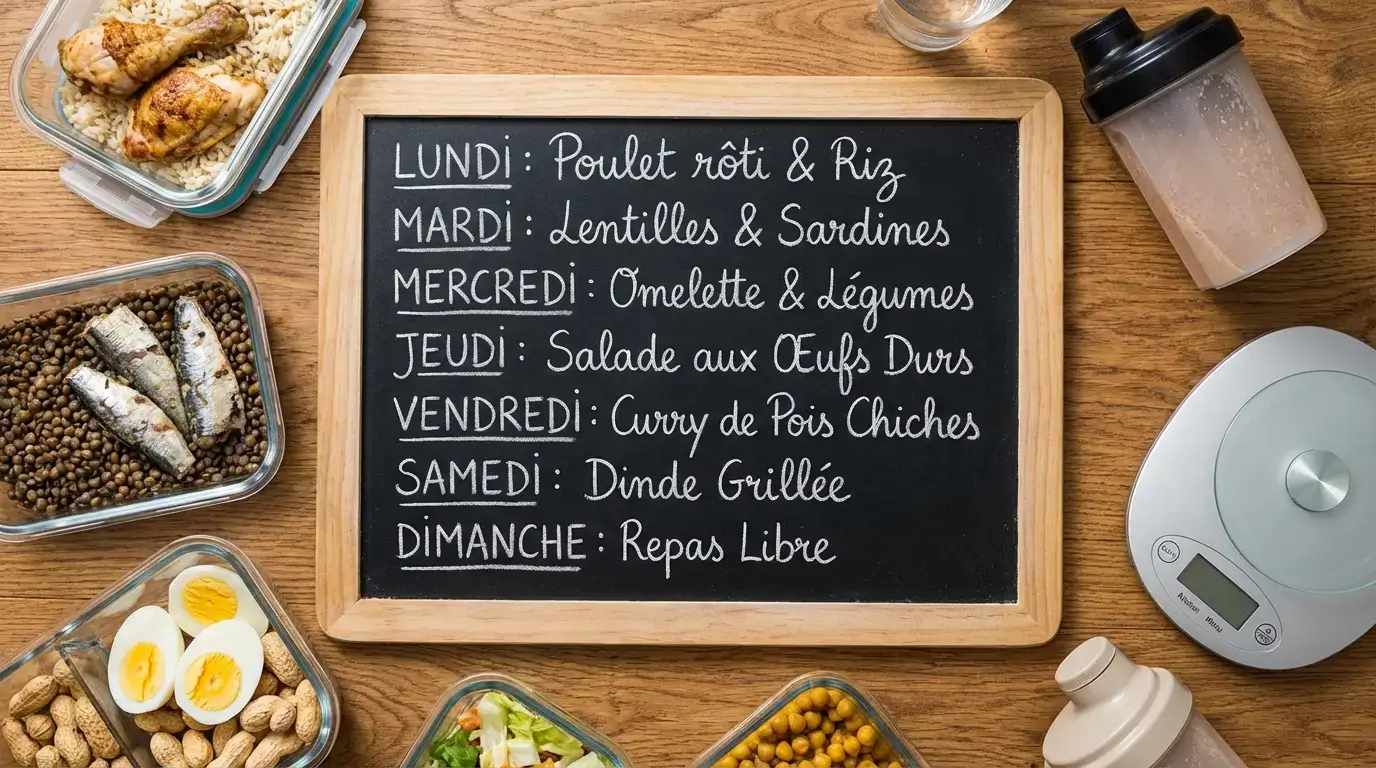 LUNDI : Poulet rôti & Riz
MARDI : Lentilles & Sardines
MERCREDI : Omelette & Légumes
JEUDI : Salade aux Œufs Durs
VENDREDI : Curry de Pois Chiches
SAMEDI : Dinde Grillée
DIMANCHE : Repas Libre